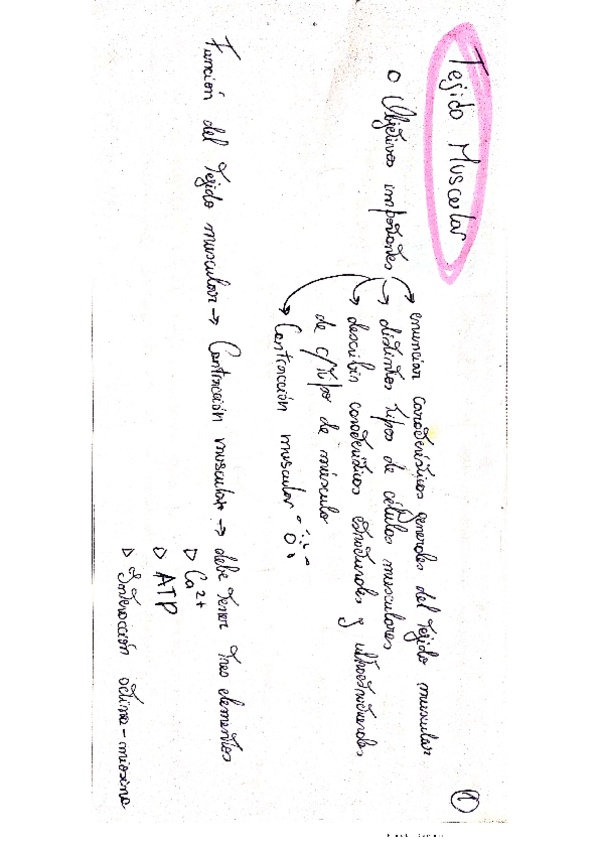 1
Tejido Muscular
o Objetivos importantes
→ enunciar características generales del tejido muscular
→ distintos tipos de células musculares
→ describir características estructurales y ultraestructurales
de c/tipo de músculo
→ Contracción muscular
Función del tejido muscular → Contracción muscular → debe tener tres elementos
▷ Ca2+
▷ ATP
▷ Interacción actina-miosina